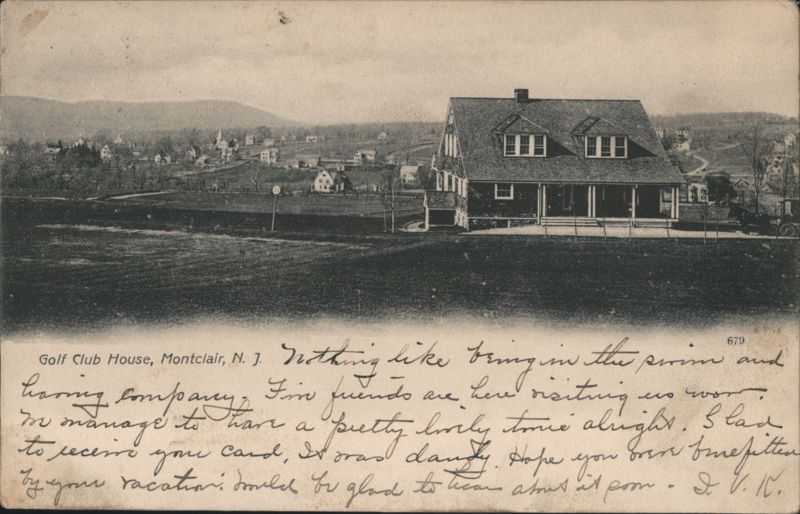 679
Golf Club House, Montclair, N. J. Nothing like being in the swim and
having company. Five friends are here visiting us now.
We manage to have a pretty lively time alright. Glad
to receive your card, It was dandy. Hope you were benefitted
by your vacation. Would be glad to hear about it soon - I. V. K.